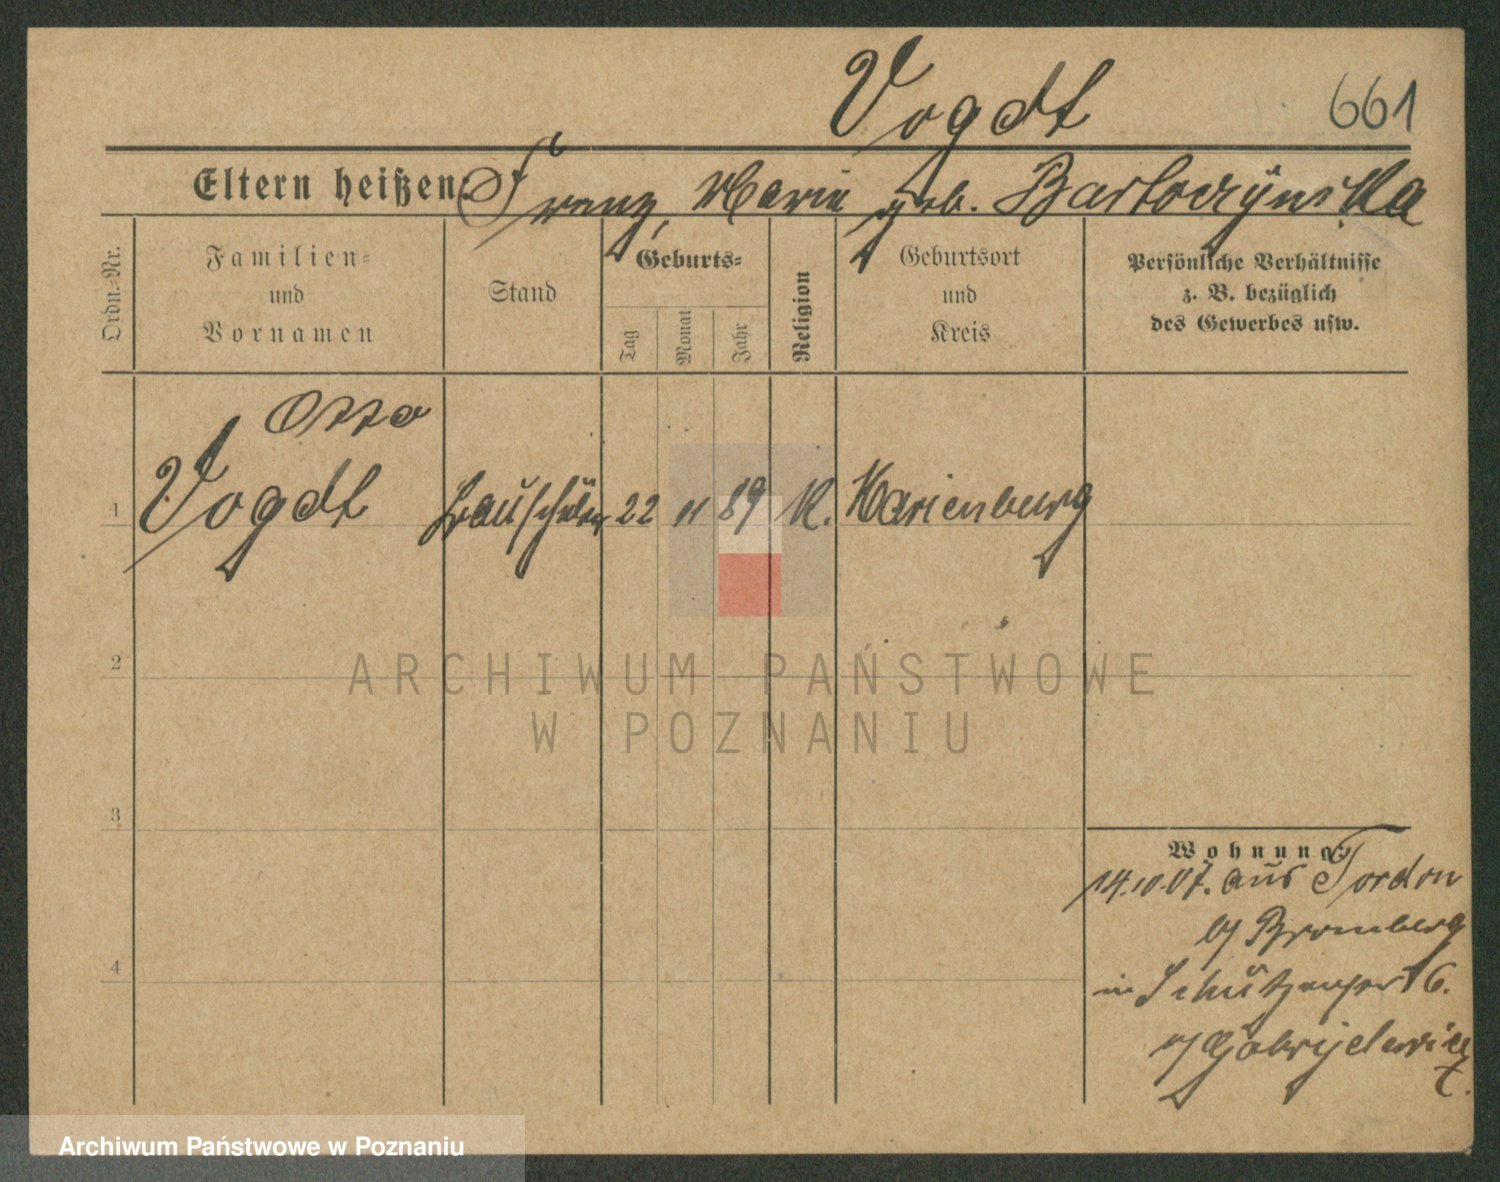 Vogdt
661
Eltern heißen: Franz, Marie geb. Bartoczynska
Ordn.-Nr.
Familien-
und
Vornamen
Stand
Geburts-
Tag
Monat
Jahr
Religion
Geburtsort
und
Kreis
Persönliche Verhältnisse
z. B. bezüglich
des Gewerbes usw.
Otto
1 Vogdt Bauschüler 22 11 89 K. Marienburg
2
3
4
Wohnung:
14.10.07. aus Fordon
b/ Bromberg
in Schützenstr 6.
b/ Gabryelewicz.
ARCHIWUM PAŃSTWOWE
W POZNANIU
Archiwum Państwowe w Poznaniu